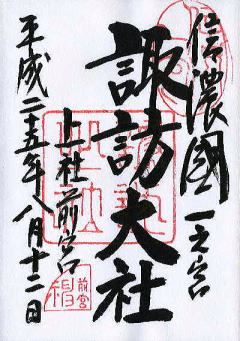 信濃國一之宮
諏訪大社
上社前宮
平成二十五年八月十二日
前宮